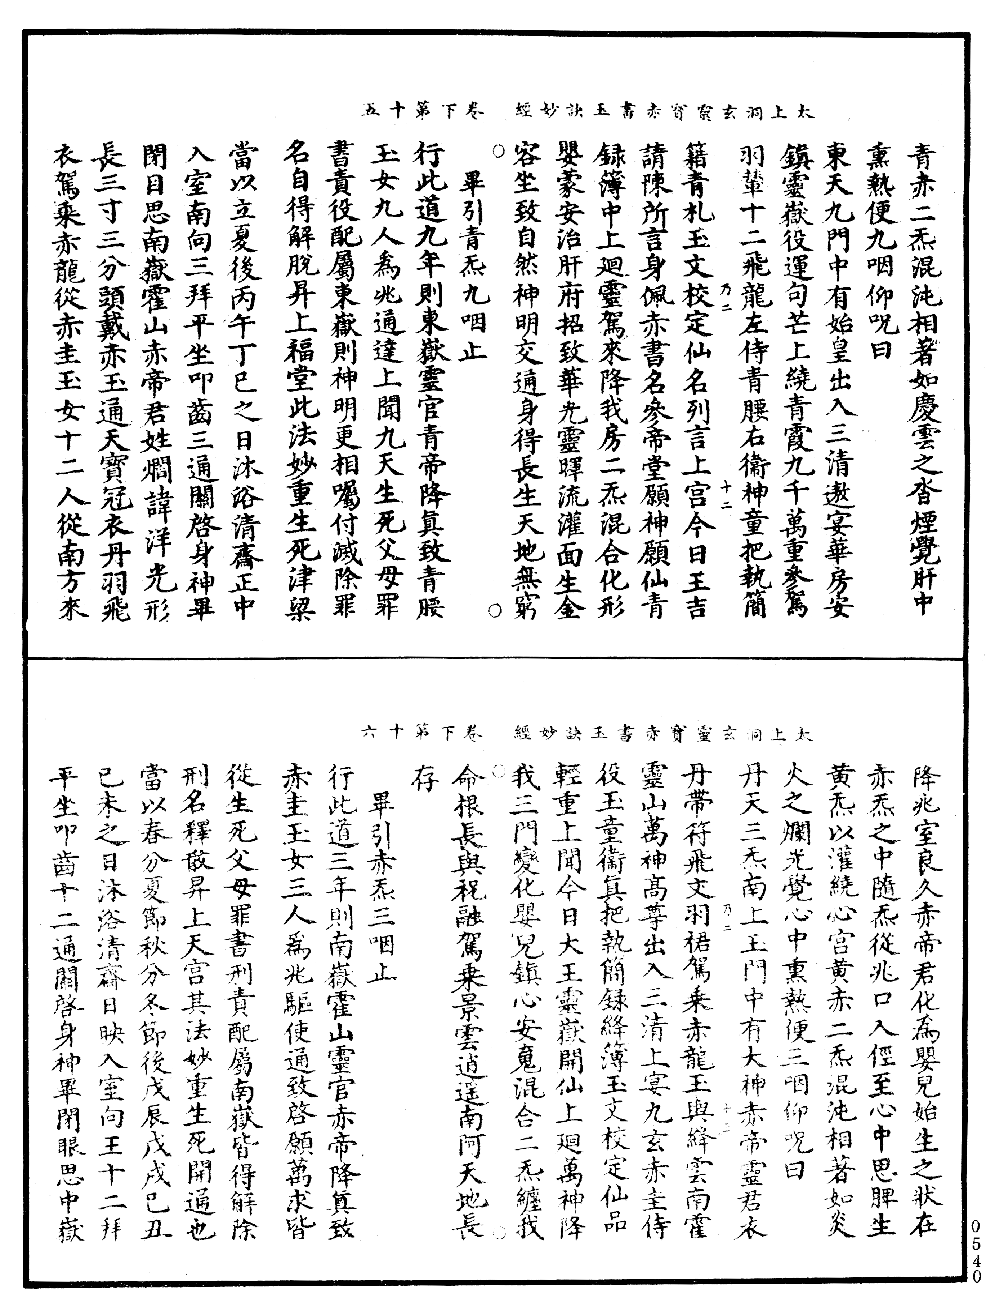 太上洞玄靈寶赤書玉訣妙經　卷下第十五
青赤二炁混沌相著如慶雲之沓煙覺肝中
熏熱便九咽仰呪曰
東天九門中有始皇出入三清遨宴華房安
鎮靈嶽役運句芒上繞青霞九千萬重參駕
羽輦十二飛龍左侍青腰右衛神童把執簡
乃二　十二
籍青札玉文校定仙名列言上宫今日王吉
請陳所言身佩赤書名參帝堂願神願仙青
録簿中上廻靈駕來降我房二炁混合化形
嬰蒙安治肝府招致華光靈暉流灌面生金
容坐致自然神明交通身得長生天地無窮
畢引青炁九咽止
行此道九年則東嶽靈官青帝降真致青腰
玉女九人爲兆通達上聞九天生死父母罪
書責役配屬東嶽則神明更相囑付滅除罪
名自得解脫昇上福堂此法妙重生死津梁
當以立夏後丙午丁巳之日沐浴清齋正中
入室南向三拜平坐叩齒三通關啓身神畢
閉目思南嶽霍山赤帝君姓爓諱洋光形
長三寸三分頭戴赤玉通天寶冠衣丹羽飛
衣駕乘赤龍從赤圭玉女十二人從南方來
太上洞玄靈寶赤書玉訣妙經　卷下第十六
降兆室良久赤帝君化爲嬰兒始生之狀在
赤炁之中隨炁從兆口入徑至心中思脾生
黃炁以灌繞心宫黄赤二炁混沌相著如炎
火之爛光覺心中熏熱便三咽仰呪曰
丹天三炁南上玉門中有大神赤帝靈君衣
乃二　十三
丹帶符飛文羽裙駕乘赤龍玉輿絳雲南霍
靈山萬神高尊出入三清上宴九玄赤圭侍
役玉童衞真把執簡録絳簿玉文校定仙品
輕重上聞今日大王靈嶽開仙上廻萬神降
我三門變化嬰兒鎮心安魂混合二炁纏我
命根長與祝融駕乘景雲逍遥南阿天地長
存
畢引赤炁三咽止
行此道三年則南嶽霍山靈官赤帝降真致
赤圭玉女三人爲兆驅使通致啓願萬求皆
從生死父母罪書刑責配屬南嶽皆得解除
刑名釋散昇上天宫其法妙重生死開通也
當以春分夏節秋分冬節後戊辰戊戌己丑
己未之日沐浴清齋日昳入室向王十二拜
平坐叩齒十二通關啓身神畢閉眼思中嶽
0540